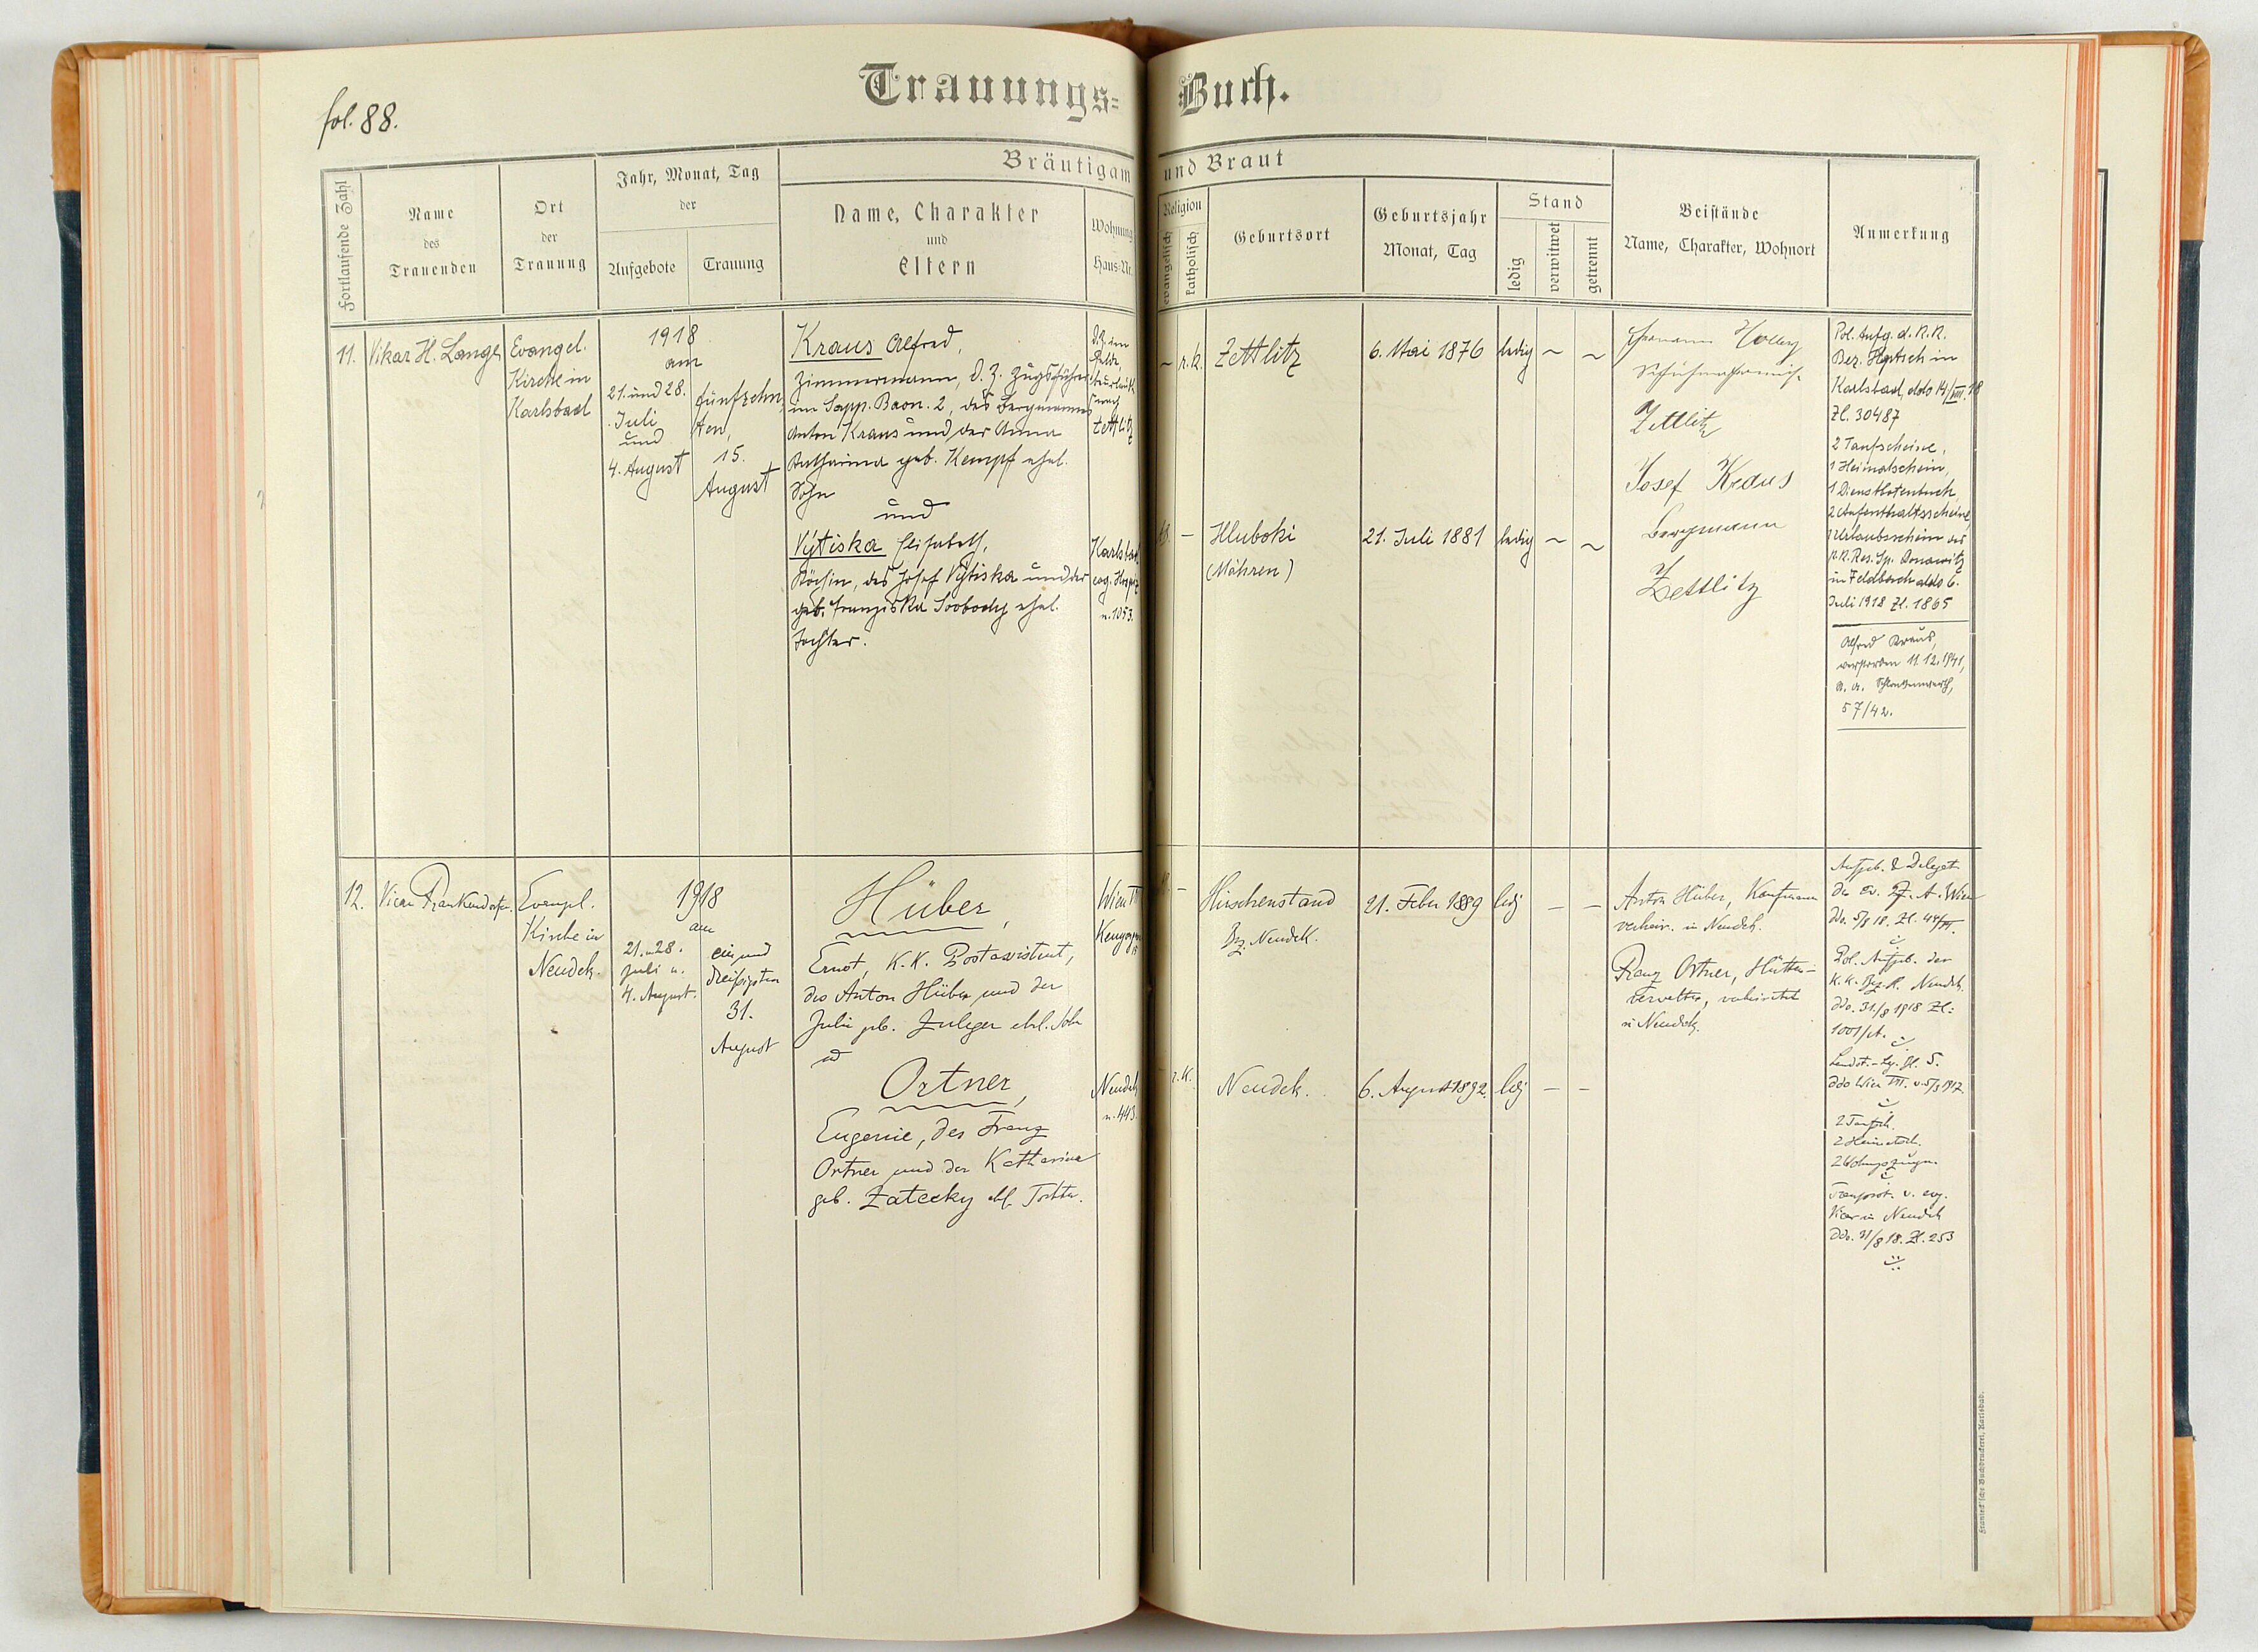 fol. 88.
Trauungs-Buch.
Fortlaufende Zahl
Name
des
Trauenden
Ort
der
Trauung
Jahr, Monat, Tag
der
Aufgebote
Trauung
Bräutigam und Braut
Name, Charakter
und
Eltern
Wohnung
Haus-Nr.
Religion
evangelisch
katholisch
Geburtsort
Geburtsjahr
Monat, Tag
Stand
ledig
verwitwet
getrennt
Beistände
Name, Charakter, Wohnort
Anmerkung
11.
Vikar H. Lange
Evangel.
Kirche in
Karlsbad
1918
am
21. und 28.
Juli
und
4. August
fünfzehn
ten,
15.
August
Kraus Alfred,
Zimmermann, d. Z. Zugsführer
im Sapp. Baon. 2, des Bergmannes
Anton Kraus und der Anna
Katharina geb. Kempf ehel.
Sohn
und
Vytiska Elisabeth,
Köchin, des Josef Vytiska und der
geb. Franziska Svobody ehel.
Tochter.
d. Z. im
Felde,
Zettlitz
Karlsbad
evg. Hospiz
n. 1053.
~ r. k.
Zettlitz
6. Mai 1876
ledig ~ ~
–
Hluboki
(Mähren)
21. Juli 1881
ledig ~ ~
Hermann
Zettlitz
Josef Kraus
Bergmann
Zettlitz
Pol. Aufg. d. K. K.
Bez. Hptsch in
Karlsbad, ddo 14/VIII. 18
Zl. 30487
2 Taufscheine,
1 Heimatschein,
1 Dienstbotenbuch,
2 Aufenthaltsscheine,
1 Urlaubsschein des
k. k. Res. Sp.
in Feldbach ddo 6.
Juli 1918 Zl. 1865
Alfred Kraus,
verstorben 11.12.1941,
St. A. Schlackenwerth,
57/42.
12.
Vicar Frankendorfer.
Evangel.
Kirche in
Neudek.
1918
am
21. u. 28.
Juli u.
4. August.
ein und
dreißigsten
31.
August
Hüber,
Ernst, K. K. Postassistent,
des Anton Hüber und der
Julie geb. Zuleger ehel. Sohn
und
Ortner,
Eugenie, des Franz
Ortner und der Katharina
geb. Zatecky ehel. Tochter.
Wien
Neudek
n. 443.
–
Hirschenstand
Bez. Neudek.
21. Feber 1889
ledig – –
r. k.
Neudek.
6. August 1892.
ledig – –
Anton Hüber, Kaufmann
verheir. in Neudek.
Franz Ortner, Hütten-
verwalter, verheiratet
in Neudek.
Aufgeb. & Delegat.
des ev. Pf.-A. Wien
ddo. 5/8 18. Zl.
Pol. Aufgeb. der
K. K. Bez. H. Neudek.
ddo. 31/8 1918 Zl:
1001/A.
ddo Wien VII. v. 5/3 1917.
2 Taufsch.
2 Heimatsch.
2 Wohngszeugn.
Trauprot. v. evg.
Vicar in Neudek
ddo. 31/8 18. Zl. 253
Franieck'sche Buchdruckerei, Karlsbad.